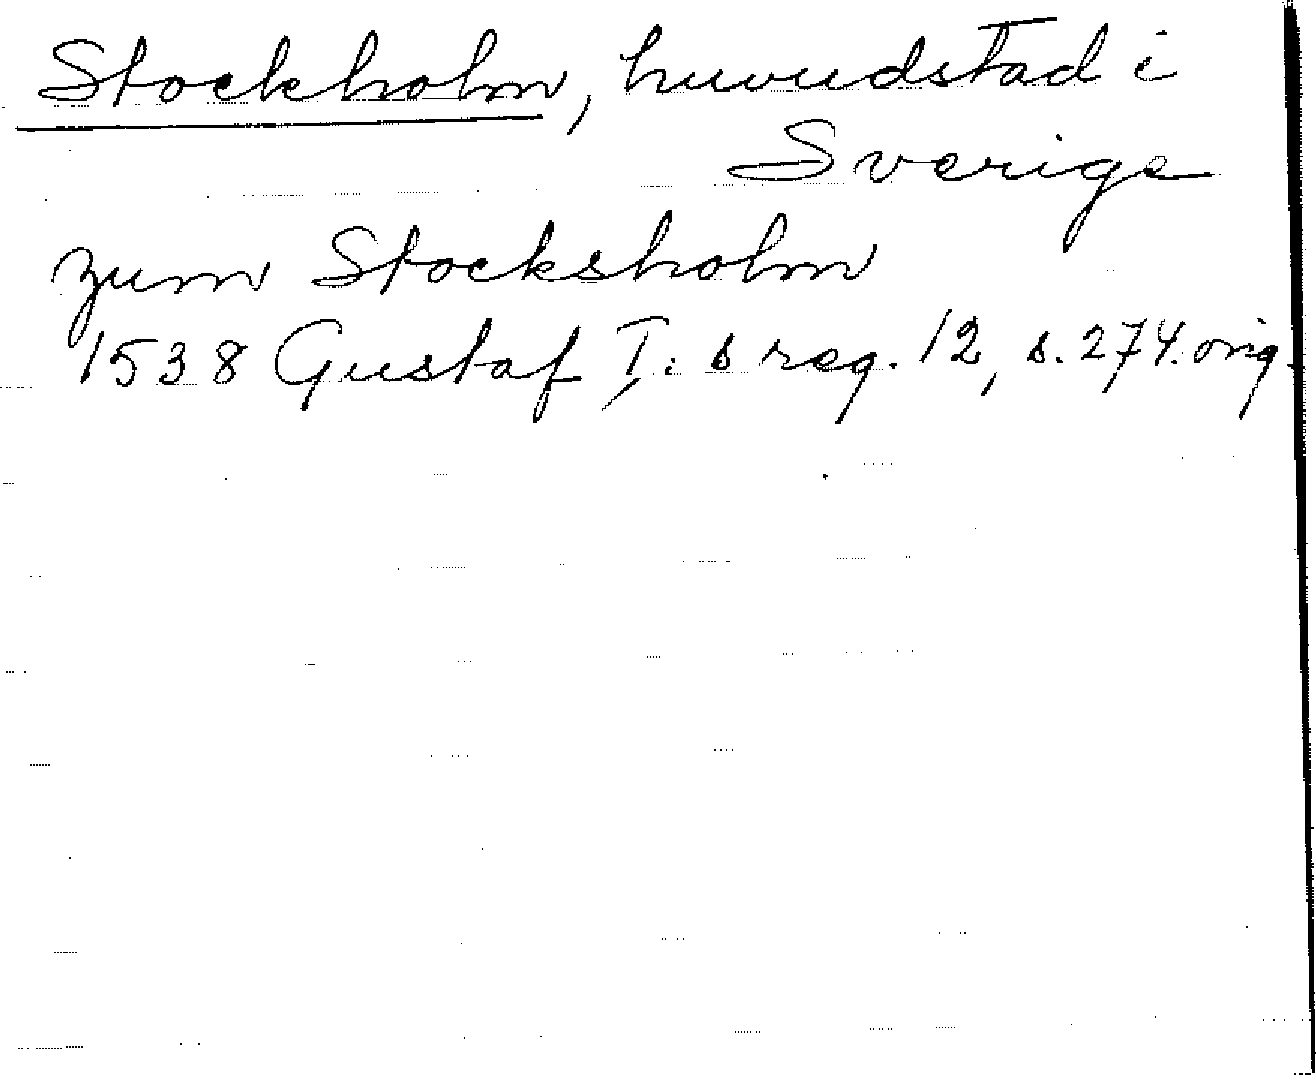 Stockholm, huvudstad i
Sverige
zum Stocksholm
1538 Gustaf I:s reg. 12, s. 274. orig.